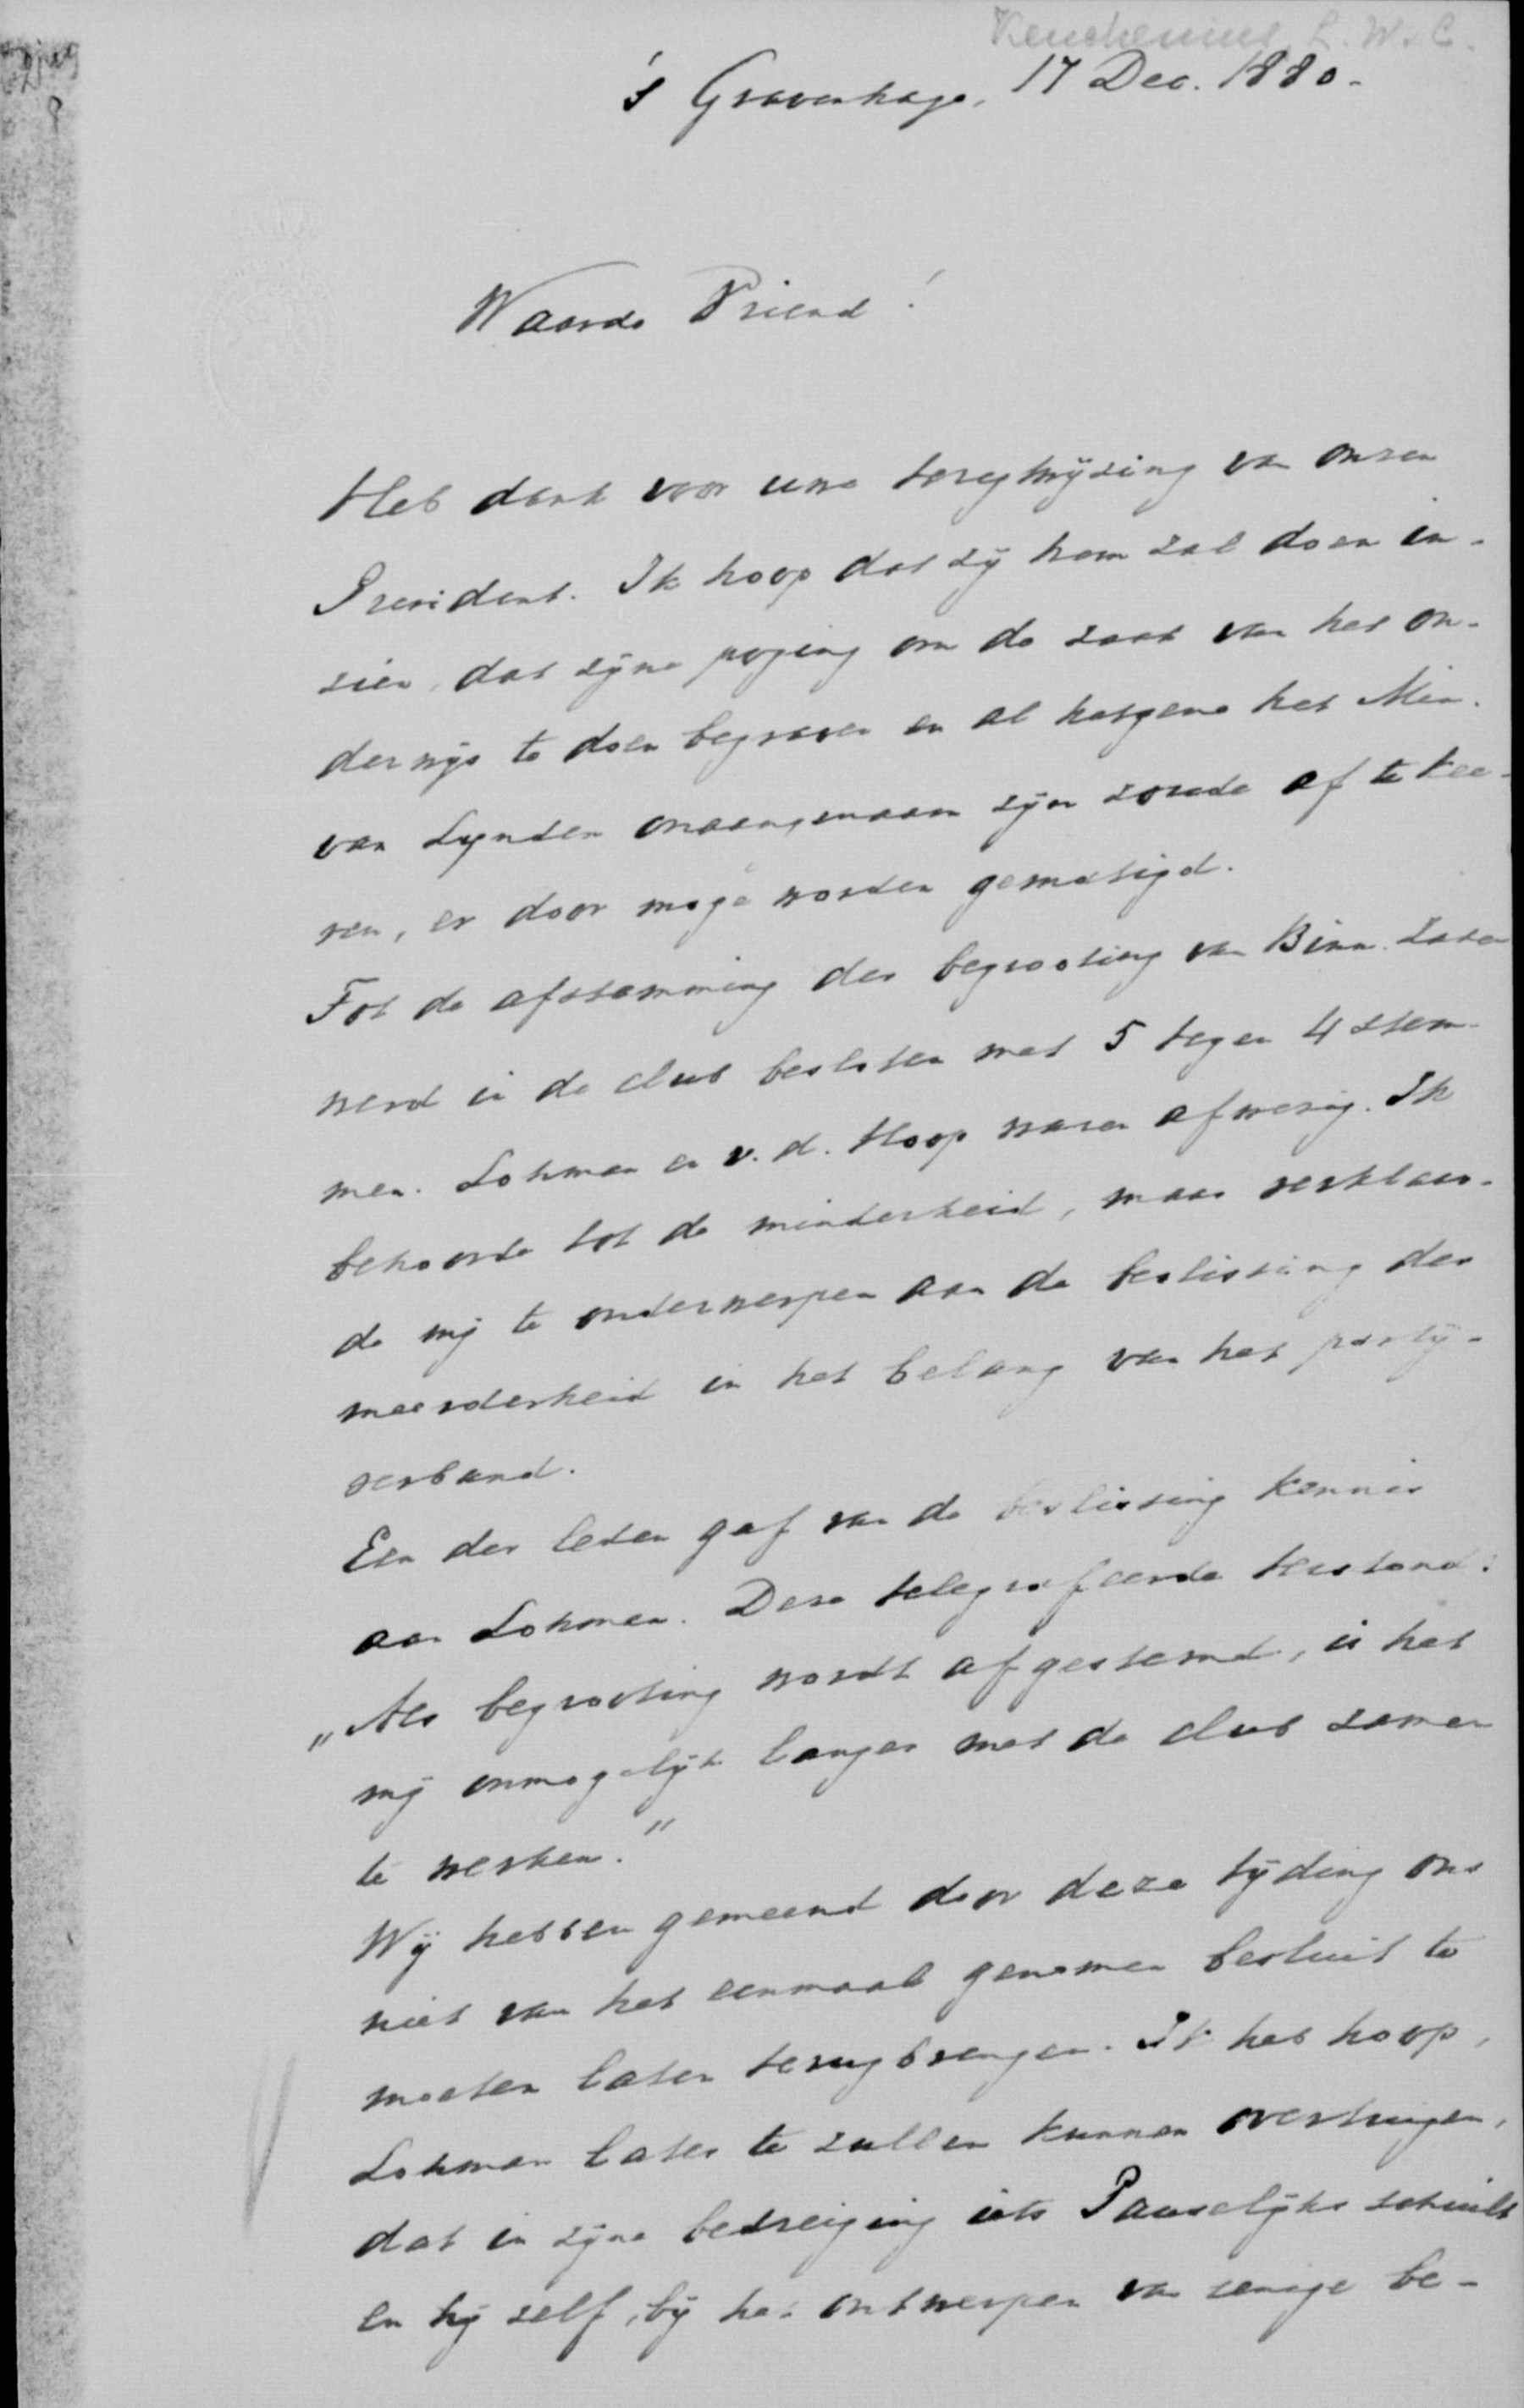 Keuchenius, L. W. C.
's Gravenhage, 17 Dec. 1880.
Waarde Vriend!
Heb dank voor uwe teregtwijzing van onzen
President. Ik hoop dat zij hem zal doen in-
zien, dat zijne poging om de zaak van het on-
derwijs te doen begraven en al hetgene het Min.
van Lynden onaangenaam zijn zoude af te kee-
ren, er door moge worden gematigd.
Tot de afstemming der begrooting van Binn. Zaken
werd in de club besloten met 5 tegen 4 stem-
men. Lohman en v. d. Hoop waren afwezig. Ik
behoorde tot de minderheid, maar verklaar-
de mij te onderwerpen aan de beslissing der
meerderheid in het belang van het partij-
verband.
Een der leden gaf van de beslissing kennis
aan Lohman. Deze telegrafeerde terstond:
"Als begrooting wordt afgestemd, is het
mij onmogelijk langer met de club samen
te werken."
Wij hebben gemeend door deze tijding ons
niet van het eenmaal genomen besluit te
moeten laten terugbrengen. Ik heb hoop,
Lohman later te zullen kunnen overtuigen,
dat in zijne bedreiging iets Pauselijks schuilt
en hij zelf, bij het ontwerpen van eenige be-